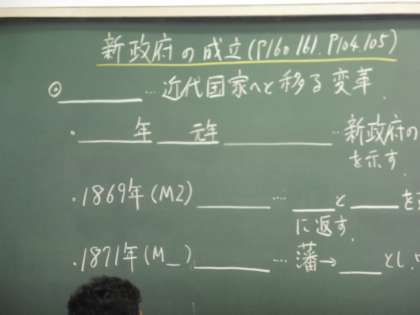 新政府の成立(P160.161.P104.105)
◎________…近代国家へと移る変革.
・____年 __元年 ________…新政府の
を示す.
・1869年(M2)________…____と____を
に返す.
・1871年(M_)________…藩→____とし